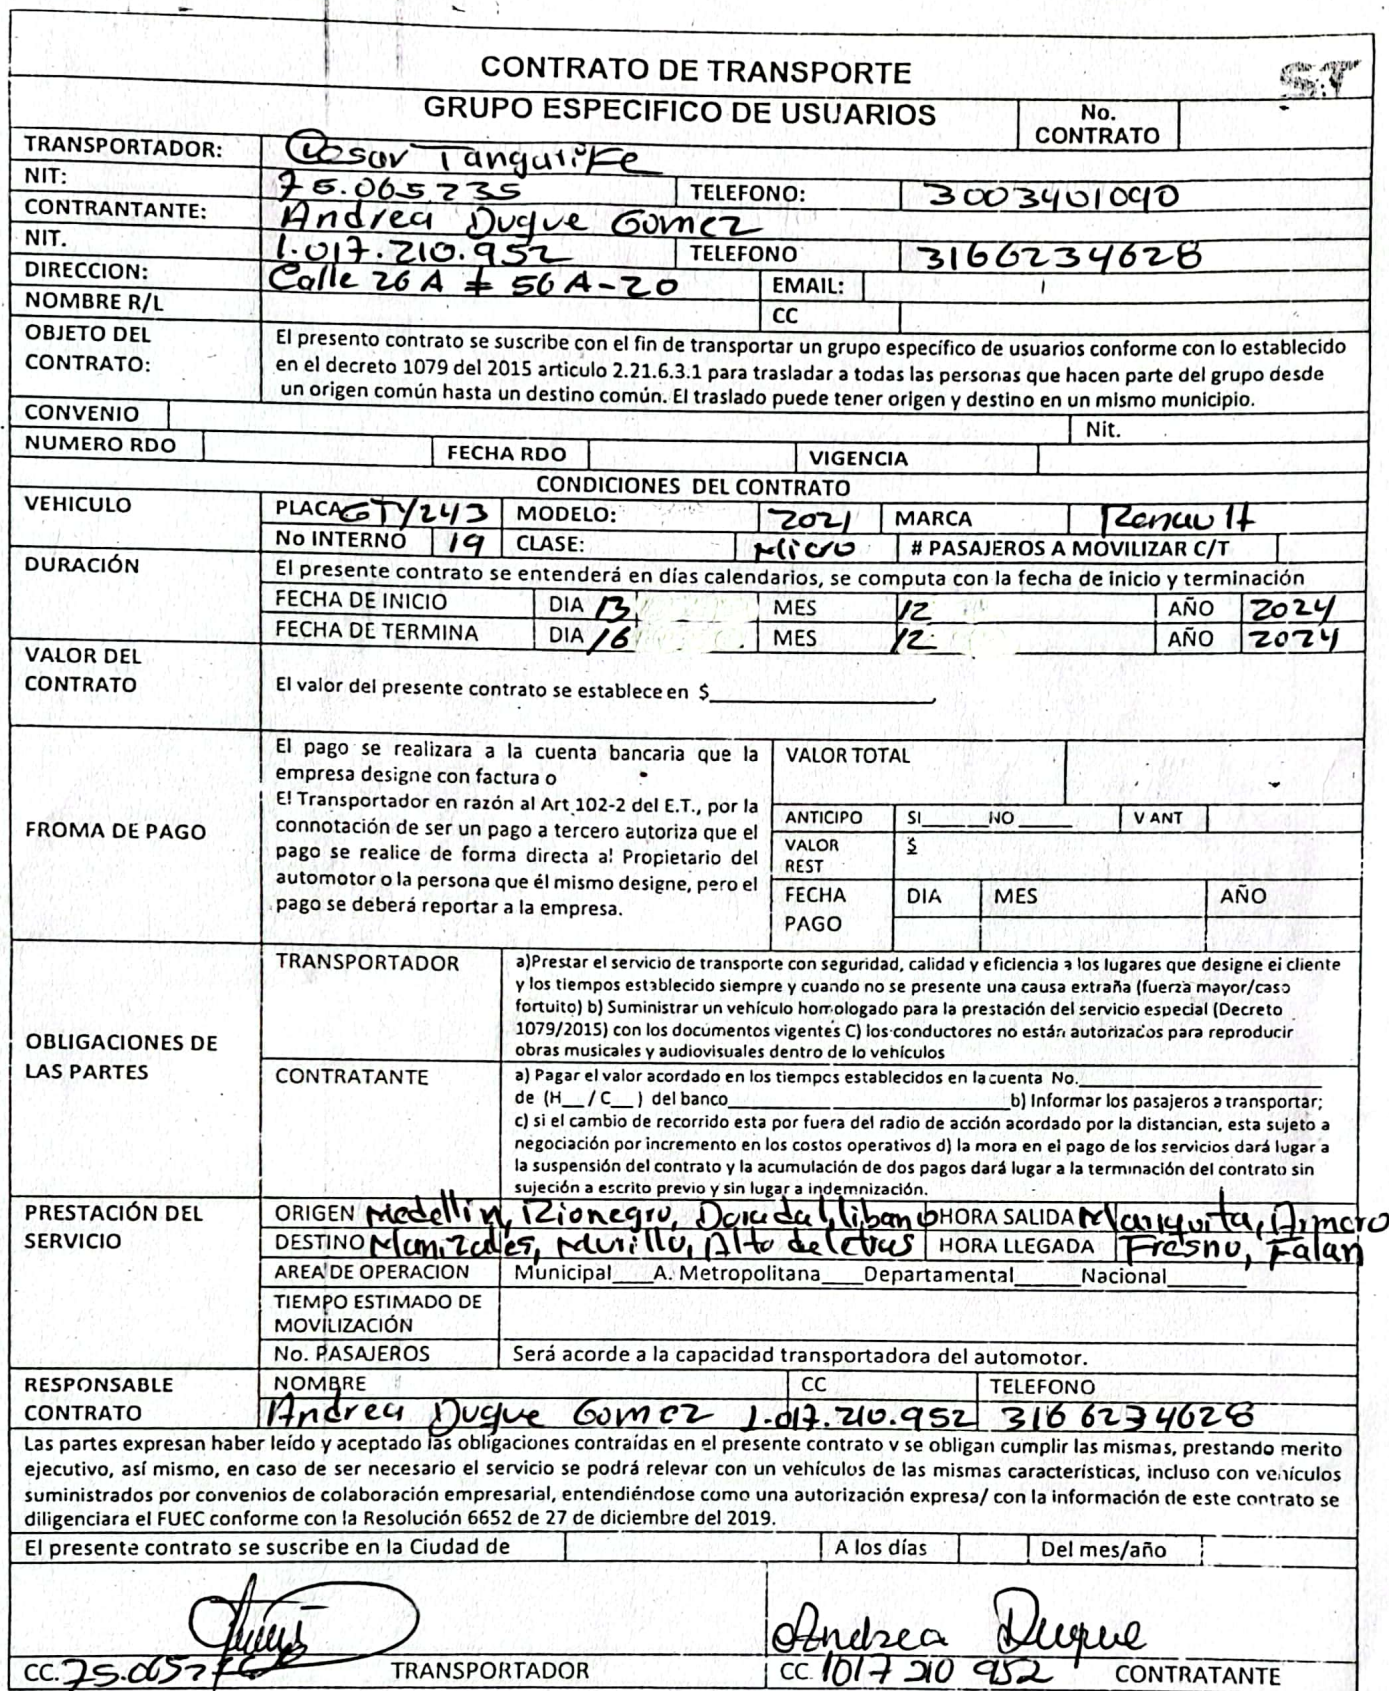 CONTRATO DE TRANSPORTE
S.T
GRUPO ESPECIFICO DE USUARIOS No. CONTRATO
TRANSPORTADOR: Cesar
NIT: 75.065.235 TELEFONO: 3003401090
CONTRANTANTE: Andrea Duque Gomez
NIT. 1.017.210.952 TELEFONO 3166234628
DIRECCION: Calle 26 A # 56 A-20 EMAIL:
NOMBRE R/L CC
OBJETO DEL CONTRATO:
El presento contrato se suscribe con el fin de transportar un grupo específico de usuarios conforme con lo establecido
en el decreto 1079 del 2015 articulo 2.21.6.3.1 para trasladar a todas las personas que hacen parte del grupo desde
un origen común hasta un destino común. El traslado puede tener origen y destino en un mismo municipio.
CONVENIO Nit.
NUMERO RDO FECHA RDO VIGENCIA
CONDICIONES DEL CONTRATO
VEHICULO PLACA GTY243 MODELO: 2021 MARCA Renault
No INTERNO 19 CLASE: Micro # PASAJEROS A MOVILIZAR C/T
DURACIÓN El presente contrato se entenderá en días calendarios, se computa con la fecha de inicio y terminación
FECHA DE INICIO DIA 13 MES 12 AÑO 2024
FECHA DE TERMINA DIA 16 MES 12 AÑO 2024
VALOR DEL CONTRATO
El valor del presente contrato se establece en $
FROMA DE PAGO
El pago se realizara a la cuenta bancaria que la
empresa designe con factura o
El Transportador en razón al Art 102-2 del E.T., por la
connotación de ser un pago a tercero autoriza que el
pago se realice de forma directa al Propietario del
automotor o la persona que él mismo designe, pero el
pago se deberá reportar a la empresa.
VALOR TOTAL
ANTICIPO SI____ NO____ V ANT
VALOR REST $
FECHA PAGO DIA MES AÑO
OBLIGACIONES DE LAS PARTES
TRANSPORTADOR
a)Prestar el servicio de transporte con seguridad, calidad y eficiencia a los lugares que designe el cliente
y los tiempos establecido siempre y cuando no se presente una causa extraña (fuerza mayor/caso
fortuito) b) Suministrar un vehículo homologado para la prestación del servicio especial (Decreto
1079/2015) con los documentos vigentes C) los conductores no están autorizados para reproducir
obras musicales y audiovisuales dentro de lo vehículos
CONTRATANTE
a) Pagar el valor acordado en los tiempos establecidos en la cuenta No.____
de (H__/C__) del banco____b) Informar los pasajeros a transportar;
c) si el cambio de recorrido esta por fuera del radio de acción acordado por la distancian, esta sujeto a
negociación por incremento en los costos operativos d) la mora en el pago de los servicios dará lugar a
la suspensión del contrato y la acumulación de dos pagos dará lugar a la terminación del contrato sin
sujeción a escrito previo y sin lugar a indemnización.
PRESTACIÓN DEL SERVICIO
ORIGEN Medellin, Rionegro, Doradal, libano HORA SALIDA Mariquita, Armero
DESTINO Manizales, Murillo, Alto de letras HORA LLEGADA Fresno, Falan
AREA DE OPERACION Municipal___A. Metropolitana___Departamental____Nacional____
TIEMPO ESTIMADO DE MOVILIZACIÓN
No. PASAJEROS Será acorde a la capacidad transportadora del automotor.
RESPONSABLE CONTRATO NOMBRE CC TELEFONO
Andrea Duque Gomez 1.017.210.952 316 6234628
Las partes expresan haber leído y aceptado las obligaciones contraídas en el presente contrato y se obligan cumplir las mismas, prestando merito
ejecutivo, así mismo, en caso de ser necesario el servicio se podrá relevar con un vehículos de las mismas características, incluso con vehículos
suministrados por convenios de colaboración empresarial, entendiéndose como una autorización expresa/ con la información de este contrato se
diligenciara el FUEC conforme con la Resolución 6652 de 27 de diciembre del 2019.
El presente contrato se suscribe en la Ciudad de A los días Del mes/año
Andrea Duque
CC. TRANSPORTADOR CC. 1017 210 952 CONTRATANTE